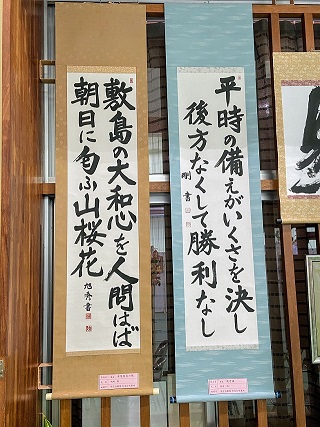 平時の備えがいくさを決し
後方なくして勝利なし
剛書
敷島の大和心を人問はば
朝日に匂ふ山桜花
旭秀書